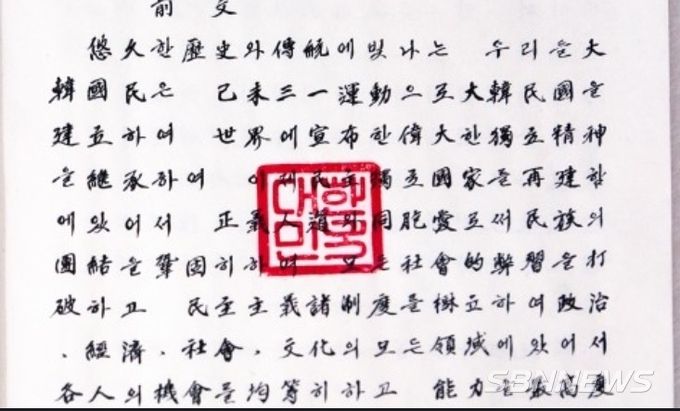 前 文
悠久한歷史와傳統에빛나는 우리들大
韓國民은 己未三一運動으로大韓民國을
建立하여 世界에宣布한偉大한獨立精神
을繼承하여 이제民主獨立國家를再建함
에있어서 正義人道와同胞愛로써民族의
團結을鞏固히하며 모든社會的弊習을打
破하고 民主主義諸制度를樹立하여政治
、經濟、社會、文化의모든領域에있어서
各人의機會를均等히하고 能力을最高度
대한
민국
SBNNEWS